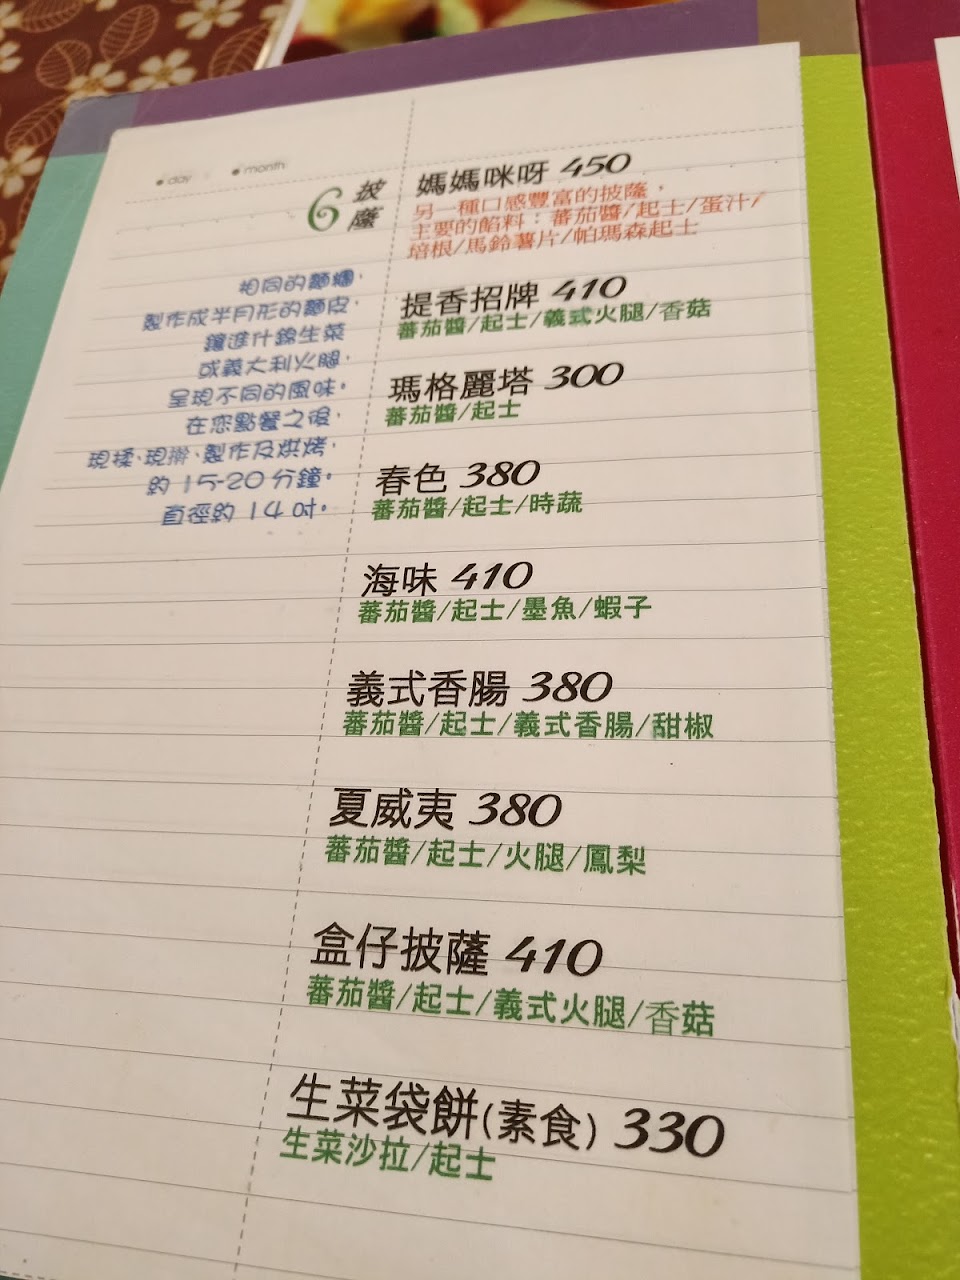 day month
6 披薩
相同的麵糰，
製作成半月形的麵皮，
鑲進什錦生菜
或義大利火腿，
呈現不同的風味。
在您點餐之後，
現揉、現擀、製作及烘烤，
約 15-20 分鐘。
直徑約 14 吋。
媽媽咪呀 450
另一種口感豐富的披薩，
主要的餡料：蕃茄醬/起士/蛋汁/
培根/馬鈴薯片/帕瑪森起士
提香招牌 410
蕃茄醬/起士/義式火腿/香菇
瑪格麗塔 300
蕃茄醬/起士
春色 380
蕃茄醬/起士/時蔬
海味 410
蕃茄醬/起士/墨魚/蝦子
義式香腸 380
蕃茄醬/起士/義式香腸/甜椒
夏威夷 380
蕃茄醬/起士/火腿/鳳梨
盒仔披薩 410
蕃茄醬/起士/義式火腿/香菇
生菜袋餅(素食) 330
生菜沙拉/起士